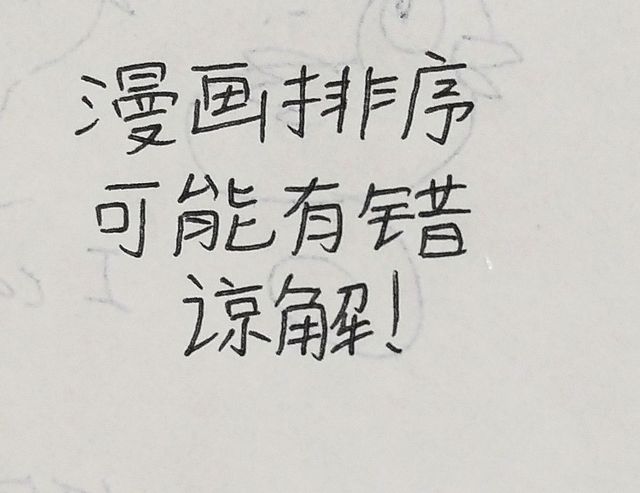 漫画排序
可能有错
谅解!